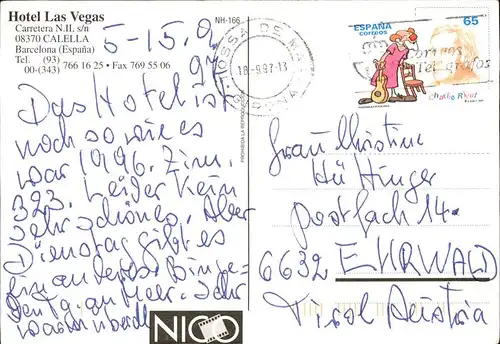 Hotel Las Vegas
Carretera N.II. s/n
08370 CALELLA
Barcelona (España)
Tel. (93)
00-(343) 766 16 25 • Fax 769 55 06
NH-166
5-15.9.
97
Das Hotel ist
noch so wie es
war 1996. Zim.
323. Leider kein
sehr schönes. Aber
Dienstag gibt es
ein anderes. Bin
den Tag am Meer. Sehr
warm überall
NICO
PROHIBIDA LA REPRODUCCION
TOSSA DE MAR
18-9-97-13
ESPAÑA
ESPAÑA
correos
65
Correos
Telégrafos
Charlie Rivel
Frau Christine
Hüttinger
Postfach 14
6632 EHRWALD
Tirol Austria